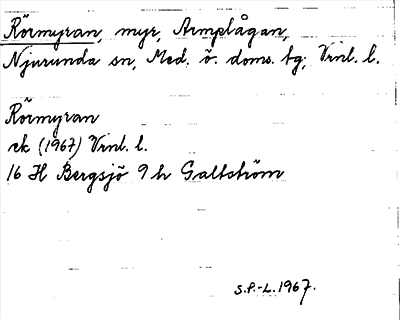 Rörmyran, myr, Armplågan,
Njurunda sn, Med. ö. doms. tg; Vrnl. l.
Rörmyran
ek (1967) Vrnl. l.
16 H Bergsjö 9 h Galtström
S.P.-L. 1967.